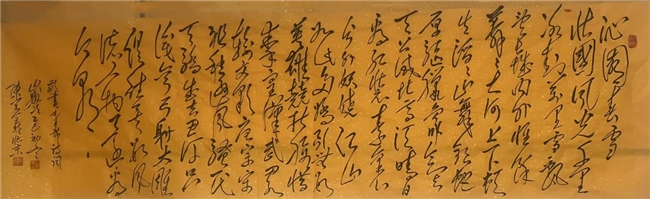 沁园春雪
北国风光千里
冰封万里雪飘
望长城内外惟余
莽莽大河上下顿
失滔滔山舞银蛇
原驰蜡象欲与
天公试比高须晴日
看红装素裹分
外妖娆江山
如此多娇引无数
英雄竞折腰惜
秦皇汉武略
输文采唐宗宋
祖稍逊风骚一代
天骄成吉思汗只
识弯弓射大雕
俱往矣数风
流人物还看
今朝
敬书毛主席诗词
于北京